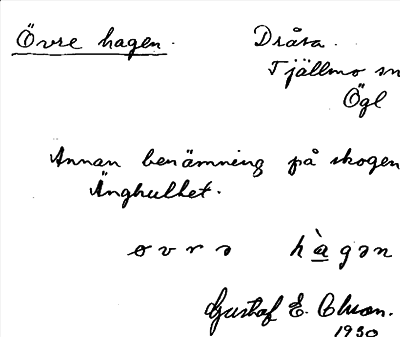 Övre hagen. Dråsa.
Tjällmo sn
Ögl
Annan benämning på skogen
Änghultet.
øvrə hàgən
Gustaf E. Olson.
1930